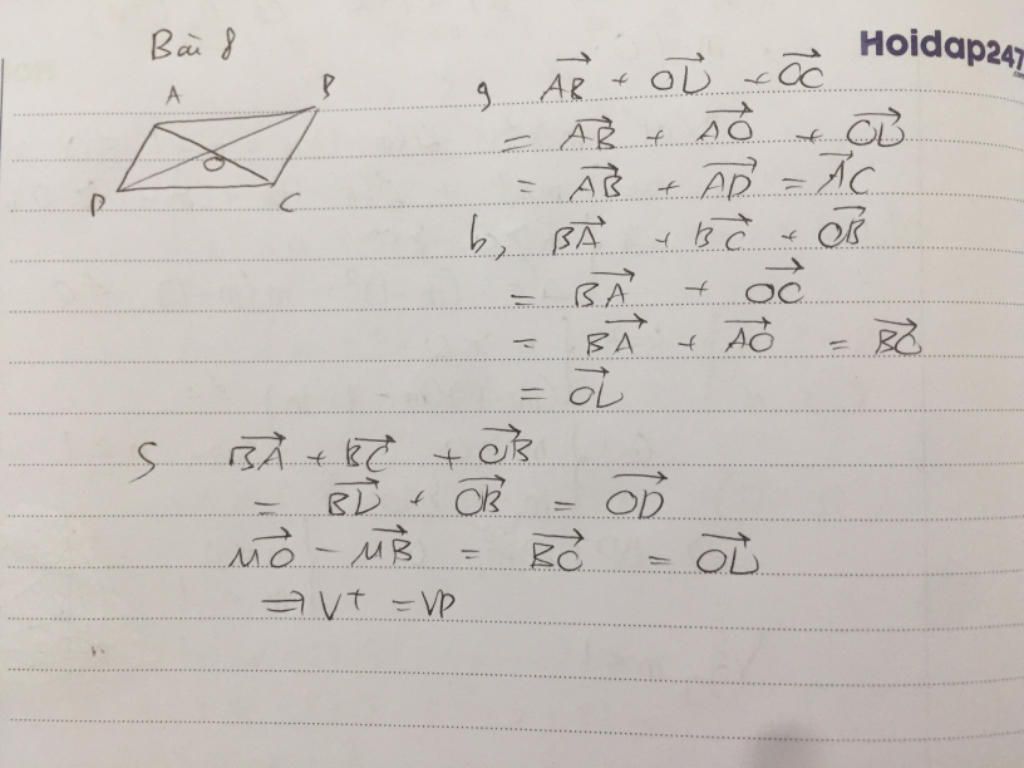 Bài 8
Hoidap247
.com
A B
O
D C
a, AB + OD + OC
= AB + AO + OD
= AB + AD = AC
b, BA + BC + OB
= BA + OC
= BA + AO = BO
= OD
c, BA + BC + OB
= BD + OB = OD
MO - MB = BO = OD
=> VT = VP